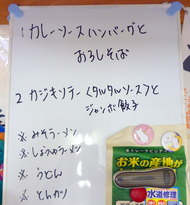 1 カレーソースハンバーグと
おろしそば
2 カジキソテー<タルタルソース>と
ジャンボ餃子
※ みそラーメン
※ しょうゆラーメン
※ うどん
※ とんカツ
お米の産地が
水道修理